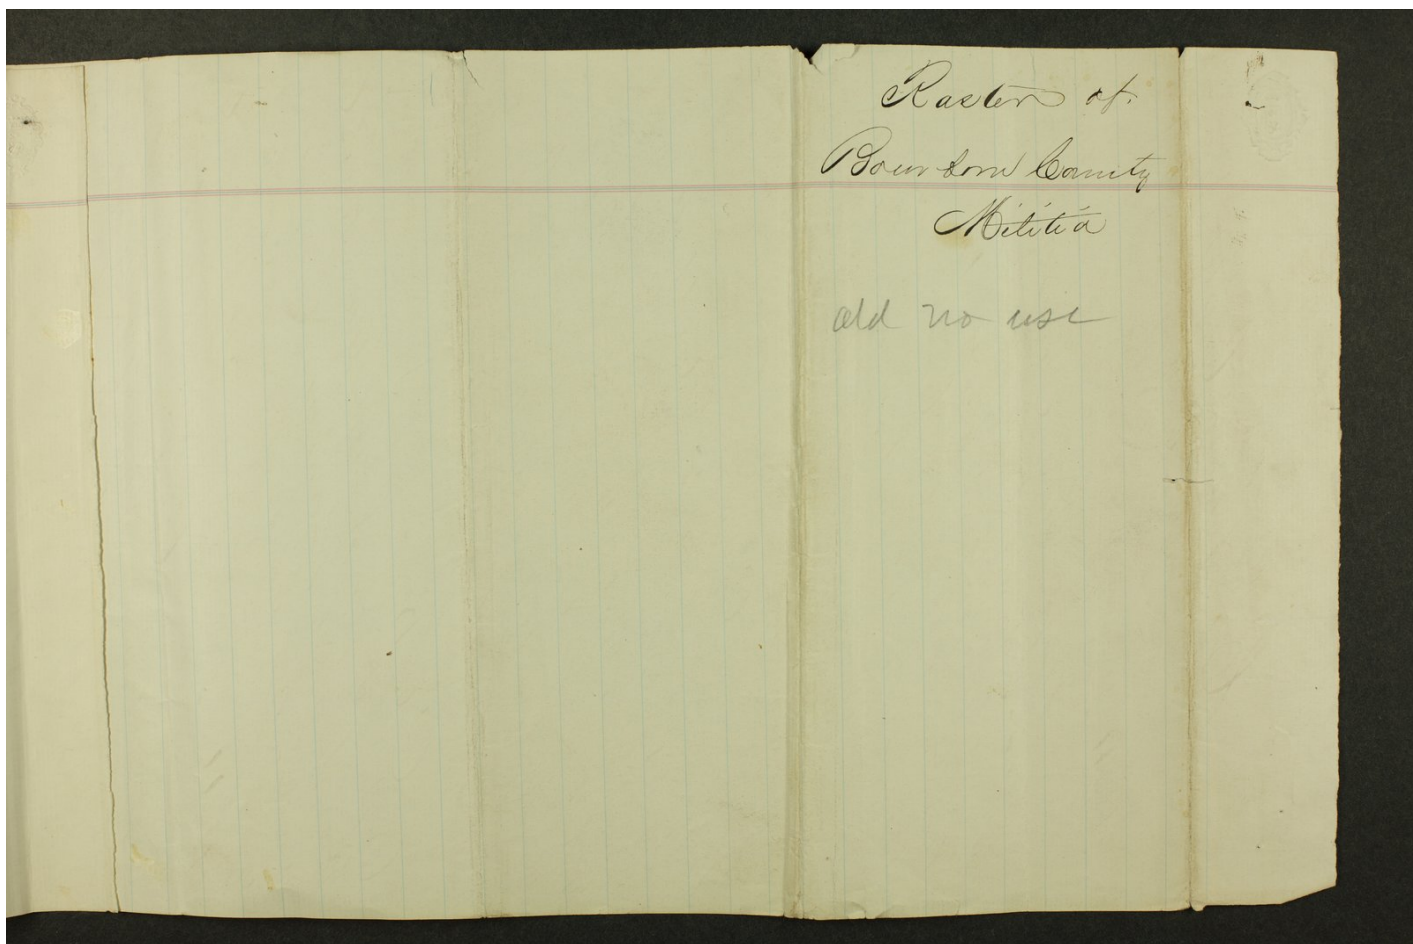 Raster of
Bourbon County
Militia
old no use